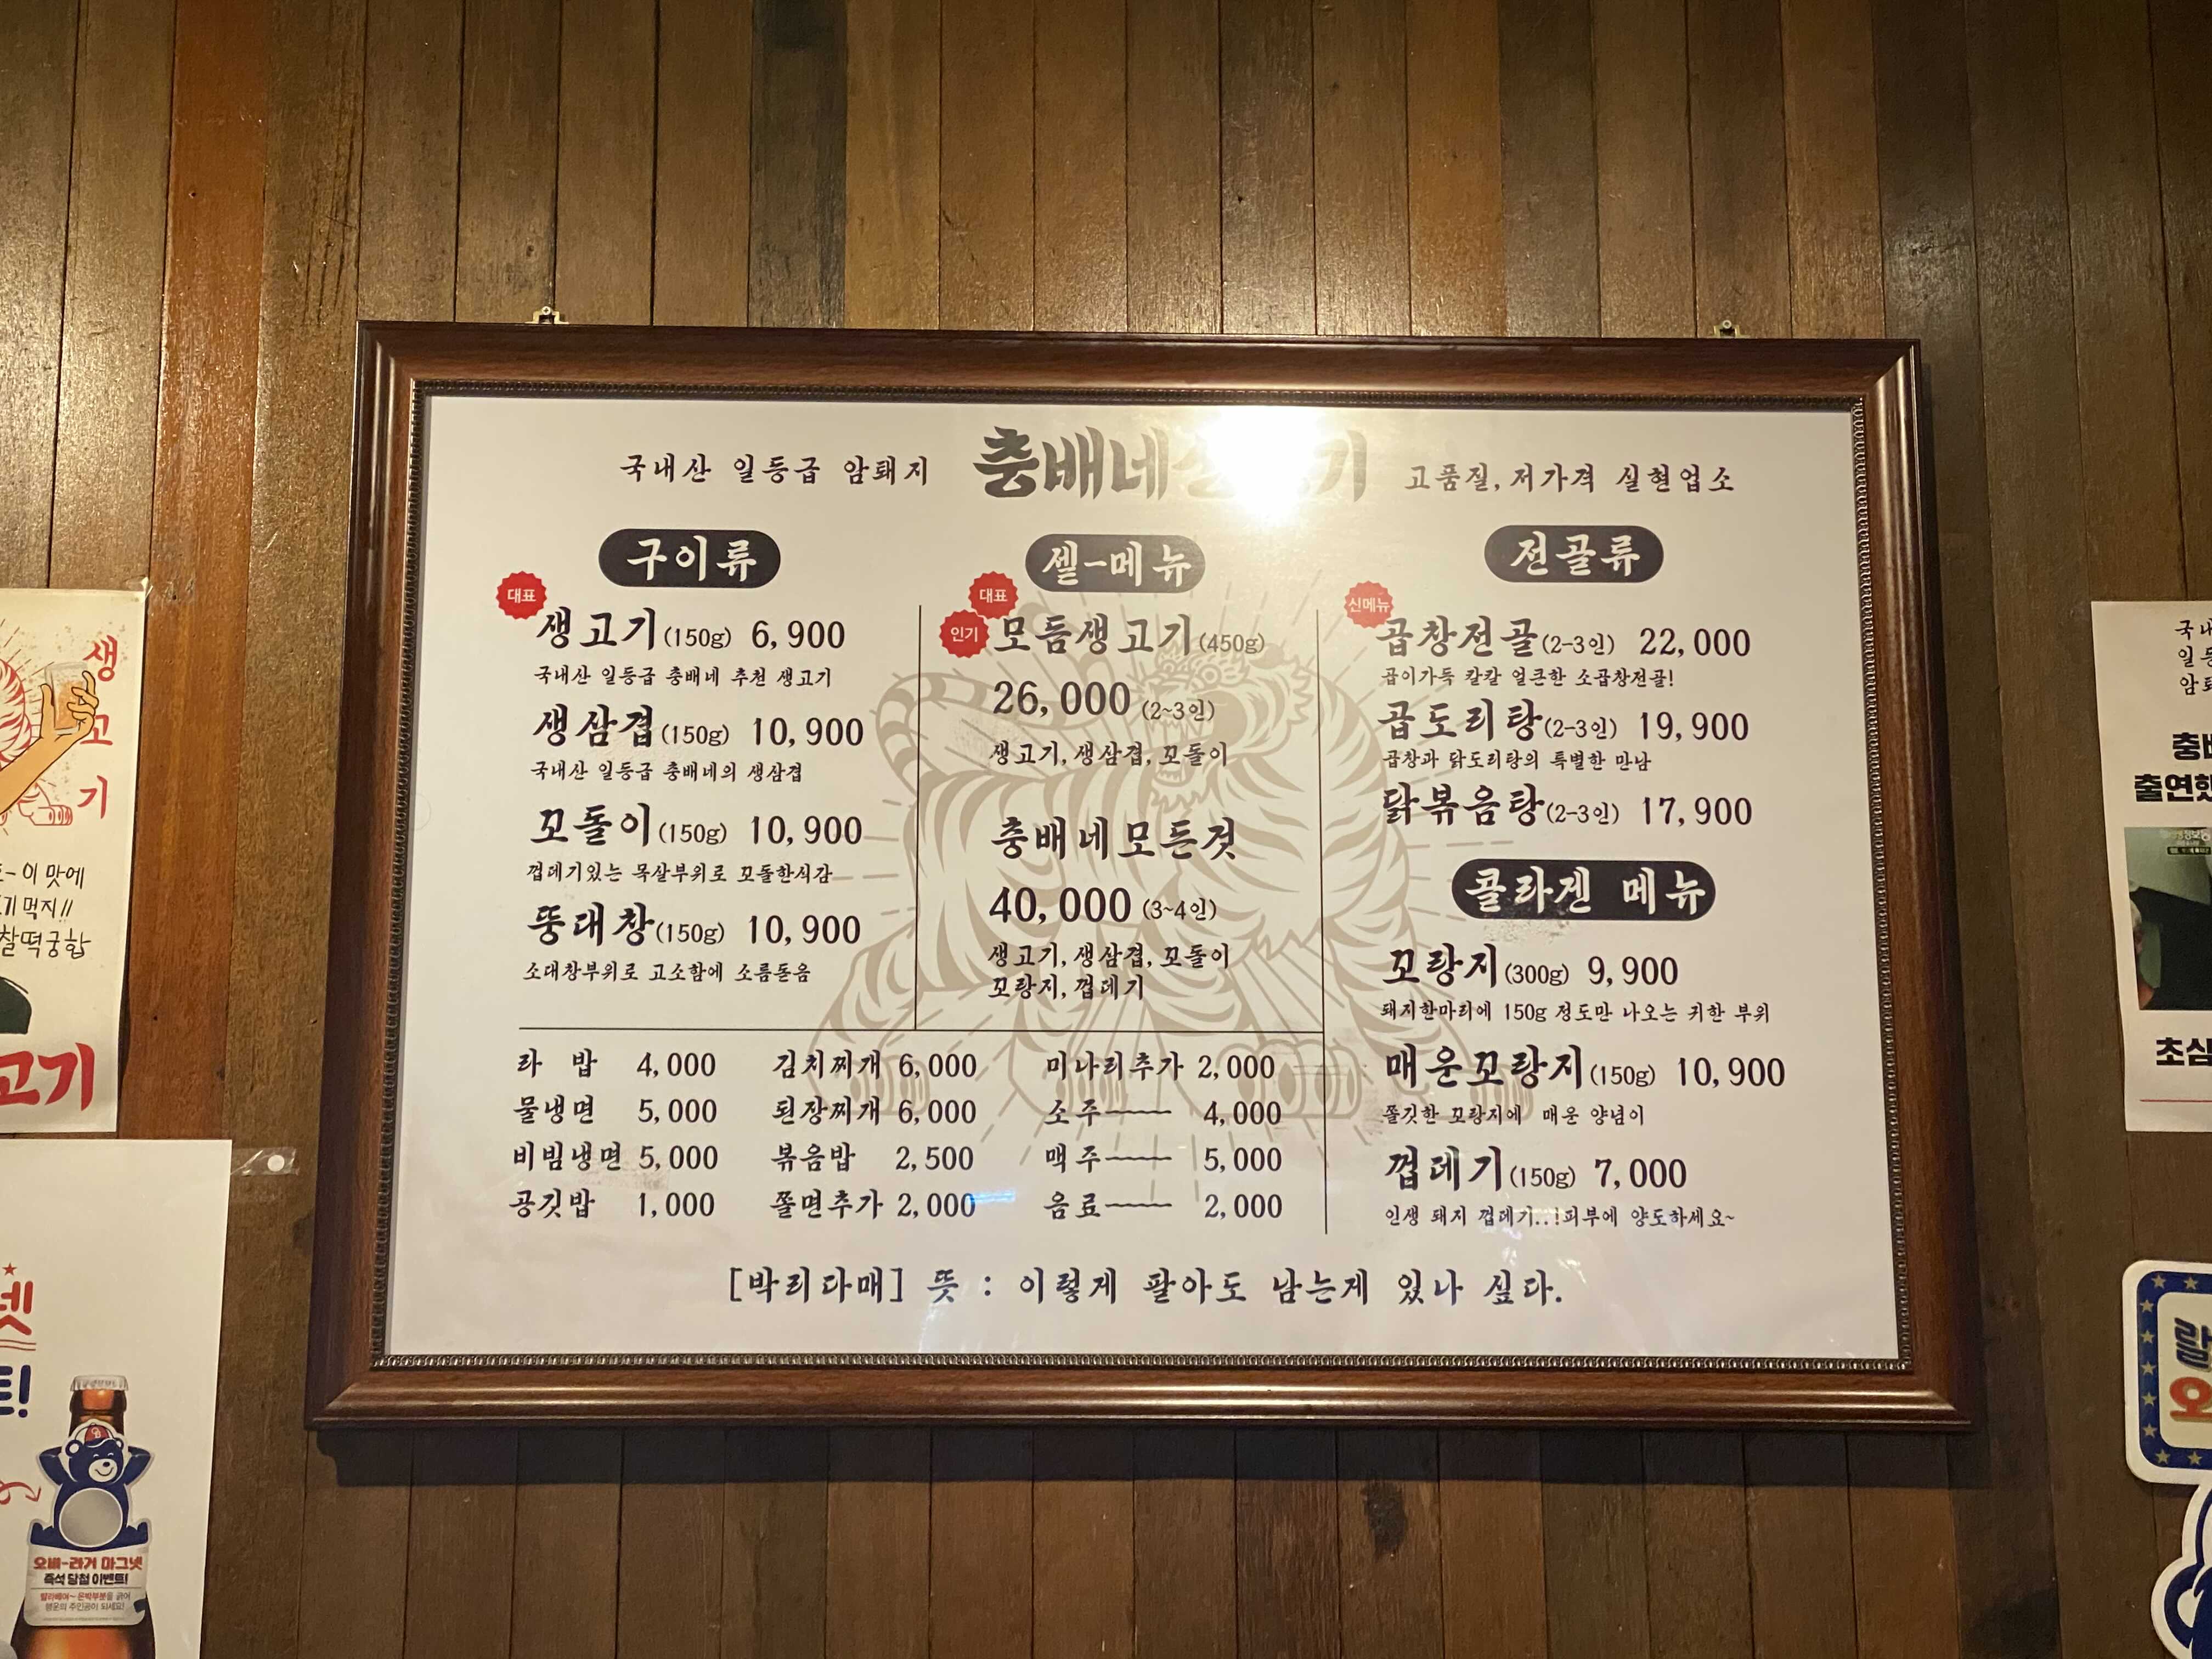 국내산 일등급 암퇘지
충배네
고품질, 저가격 실현업소
구이류
대표
생고기(150g) 6,900
국내산 일등급 충배네 추천 생고기
생삼겹(150g) 10,900
국내산 일등급 충배네의 생삼겹
꼬돌이(150g) 10,900
껍데기있는 목살부위로 꼬돌한식감
뚱대창(150g) 10,900
소대창부위로 고소함에 소름돋음
셀-메뉴
대표
인기
모듬생고기(450g)
26,000 (2~3인)
생고기, 생삼겹, 꼬돌이
충배네모든것
40,000 (3~4인)
생고기, 생삼겹, 꼬돌이
꼬랑지, 껍데기
전골류
신메뉴
곱창전골(2-3인) 22,000
곱이가득 칼칼 얼큰한 소곱창전골!
곱도리탕(2-3인) 19,900
곱창과 닭도리탕의 특별한 만남
닭볶음탕(2-3인) 17,900
콜라겐 메뉴
꼬랑지(300g) 9,900
돼지한마리에 150g 정도만 나오는 귀한 부위
매운꼬랑지(150g) 10,900
쫄깃한 꼬랑지에 매운 양념이
껍데기(150g) 7,000
인생 돼지 껍데기..!피부에 양도하세요~
라 밥 4,000 김치찌개 6,000 미나리추가 2,000
물냉면 5,000 된장찌개 6,000 소주 4,000
비빔냉면 5,000 볶음밥 2,500 맥주 5,000
공깃밥 1,000 쫄면추가 2,000 음료 2,000
[박리다매] 뜻 : 이렇게 팔아도 남는게 있나 싶다.
생
고
기
이 맛에
먹지!!
찰떡궁합
고기
넷
오비-라거 마그넷
즉석 당첨 이벤트!
국내
일등
암퇘
충배
출연했
초심
랄
오